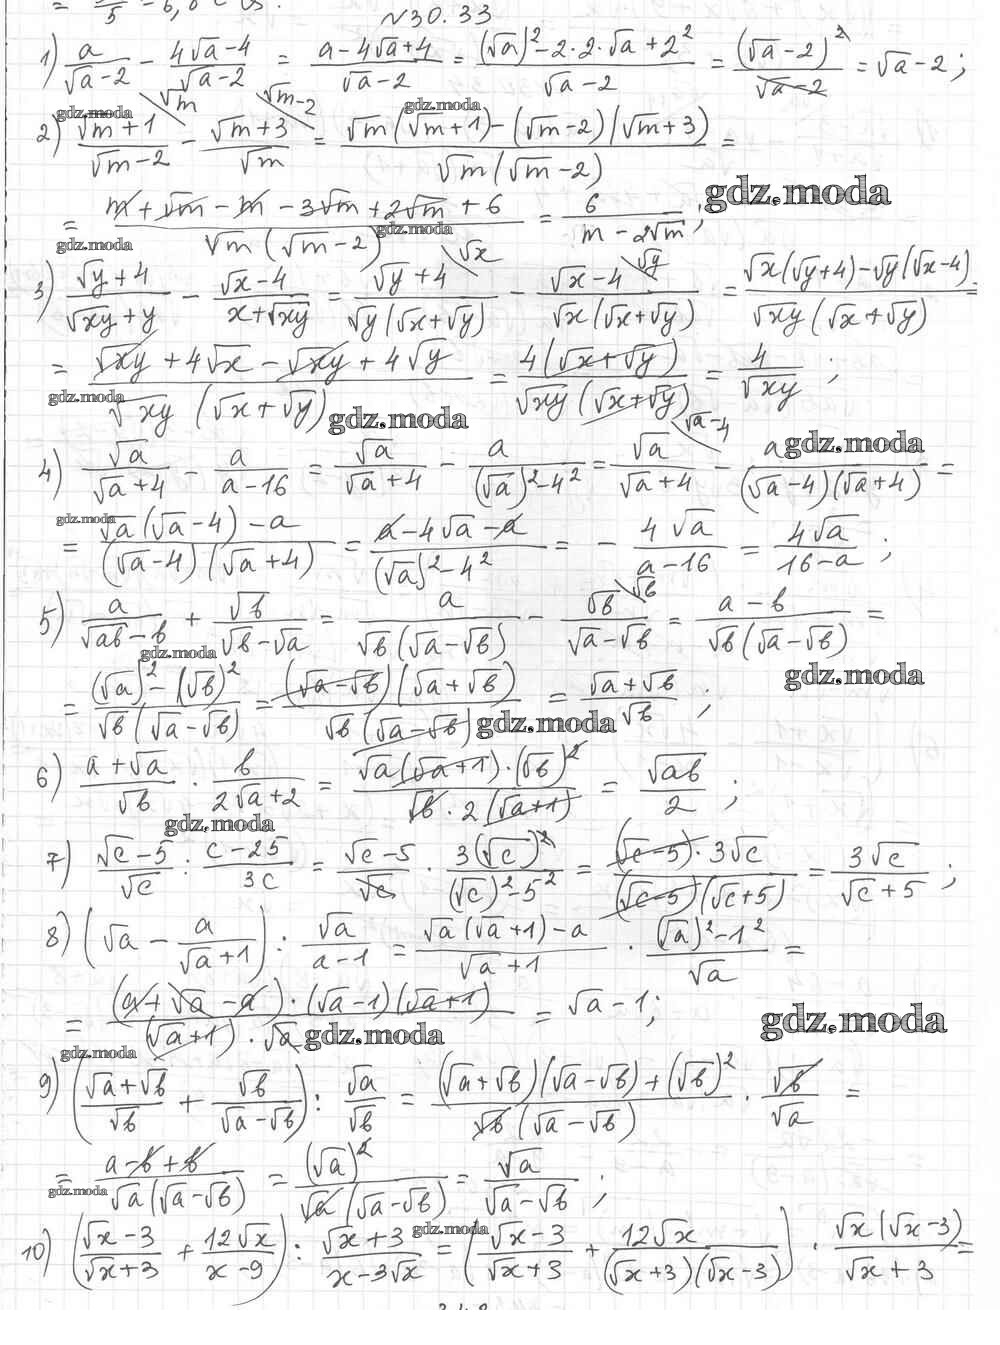 = /5 = 6,8
N30.33
1) a/(√a-2) - (4√a-4)/(√a-2) = (a-4√a+4)/(√a-2) = ((√a)²-2·2·√a+2²)/(√a-2) = (√a-2)²/(√a-2) = √a-2;
2) (√m+1)/(√m-2) \√m - (√m+3)/√m \√m-2 = (√m(√m+1)-(√m-2)(√m+3))/(√m(√m-2)) =
gdz.moda gdz.moda
= (m+√m-m-3√m+2√m+6)/(√m(√m-2)) = 6/(m-2√m);
gdz.moda gdz.moda gdz.moda
3) (√y+4)/(√xy+y) - (√x-4)/(x+√xy) = (√y+4)/(√y(√x+√y)) \√x - (√x-4)/(√x(√x+√y)) \√y = (√x(√y+4)-√y(√x-4))/(√xy(√x+√y)) =
= (√xy+4√x-√xy+4√y)/(√xy(√x+√y)) = 4(√x+√y)/(√xy(√x+√y)) = 4/√xy;
gdz.moda gdz.moda
4) √a/(√a+4) - a/(a-16) = √a/(√a+4) - a/((√a)²-4²) = √a/(√a+4) \√a-4 - a/((√a-4)(√a+4)) =
gdz.moda gdz.moda
= (√a(√a-4)-a)/((√a-4)(√a+4)) = (a-4√a-a)/((√a)²-4²) = - 4√a/(a-16) = 4√a/(16-a);
5) a/(√ab-b) + √b/(√b-√a) = a/(√b(√a-√b)) - √b/(√a-√b) \√b = (a-b)/(√b(√a-√b)) =
gdz.moda gdz.moda
= ((√a)²-(√b)²)/(√b(√a-√b)) = (√a-√b)(√a+√b)/(√b(√a-√b)) = (√a+√b)/√b;
gdz.moda
6) (a+√a)/√b · b/(2√a+2) = √a(√a+1)·(√b)²/(√b·2(√a+1)) = √ab/2;
gdz.moda
7) (√c-5)/√c : (c-25)/3c = (√c-5)/√c · 3(√c)²/((√c)²-5²) = (√c-5)·3√c/((√c-5)(√c+5)) = 3√c/(√c+5);
8) (√a - a/(√a+1)) : √a/(a-1) = (√a(√a+1)-a)/(√a+1) · ((√a)²-1²)/√a =
= (a+√a-a)·(√a-1)(√a+1)/((√a+1)·√a) = √a-1;
gdz.moda gdz.moda gdz.moda
9) ((√a+√b)/√b + √b/(√a-√b)) : √a/√b = ((√a+√b)(√a-√b)+(√b)²)/(√b(√a-√b)) · √b/√a =
= (a-b+b)/(√a(√a-√b)) = (√a)²/(√a(√a-√b)) = √a/(√a-√b);
gdz.moda gdz.moda
10) ((√x-3)/(√x+3) + 12√x/(x-9)) : (√x+3)/(x-3√x) = ((√x-3)/(√x+3) + 12√x/((√x+3)(√x-3))) · √x(√x-3)/(√x+3) =